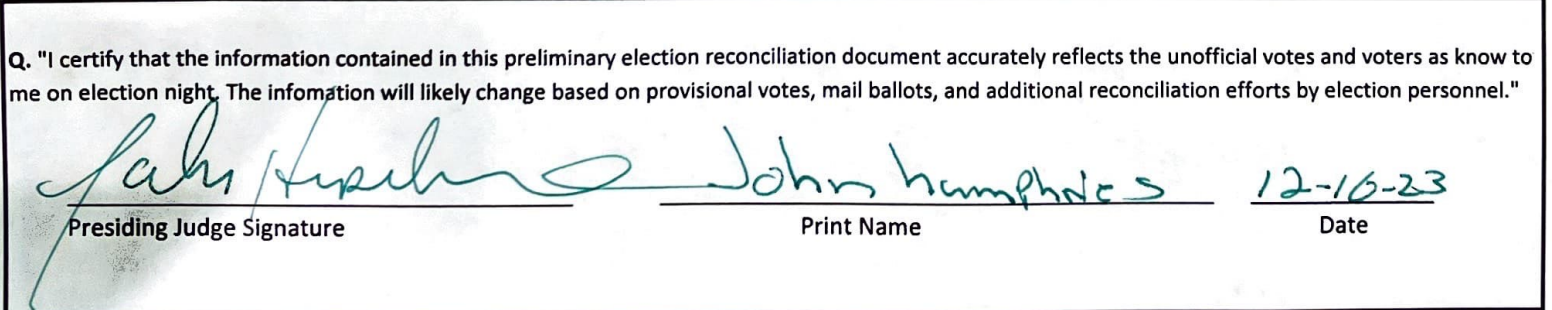 Q. "I certify that the information contained in this preliminary election reconciliation document accurately reflects the unofficial votes and voters as know to
me on election night. The infomation will likely change based on provisional votes, mail ballots, and additional reconciliation efforts by election personnel."
John Humphries 12-16-23
Presiding Judge Signature Print Name Date